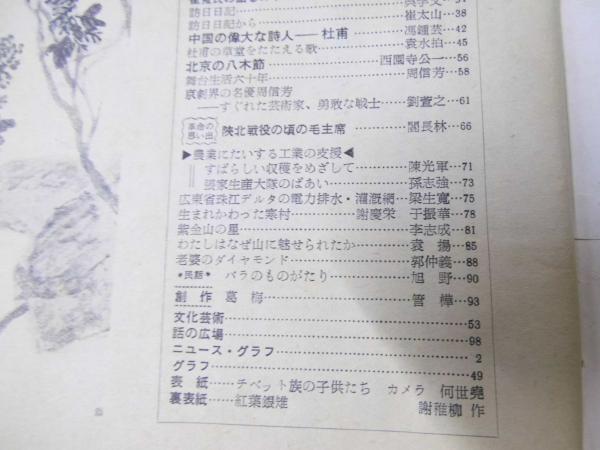 訪日日記
訪日日記から……崔太山…38
中国の偉大な詩人――杜甫……馮鍾芸…42
杜甫の草堂をたたえる歌……袁水拍…45
北京の八木節……西園寺公一…56
舞台生活六十年……周信芳…58
京劇界の名優周信芳
――すぐれた芸術家、勇敢な戦士…劉萱之…61
革命の思い出 陝北戦役の頃の毛主席……閻長林…66
▶農業にたいする工業の支援◀
すばらしい収穫をめざして……陳光軍…71
張家生産大隊のばあい……孫志強…73
広東省珠江デルタの電力排水・灌漑網…梁生寛…75
生まれかわった寒村……謝慶栄 于振華…78
紫金山の星……李志成…81
わたしはなぜ山に魅せられたか……袁揚…85
老婆のダイヤモンド……郭仲義…88
*民話* バラのものがたり……旭野…90
創作 葛梅……管樺…93
文化芸術……53
話の広場……98
ニュース・グラフ……2
グラフ……49
表紙……チベット族の子供たち カメラ 何世堯
裏表紙……紅葉銀雉 謝稚柳 作